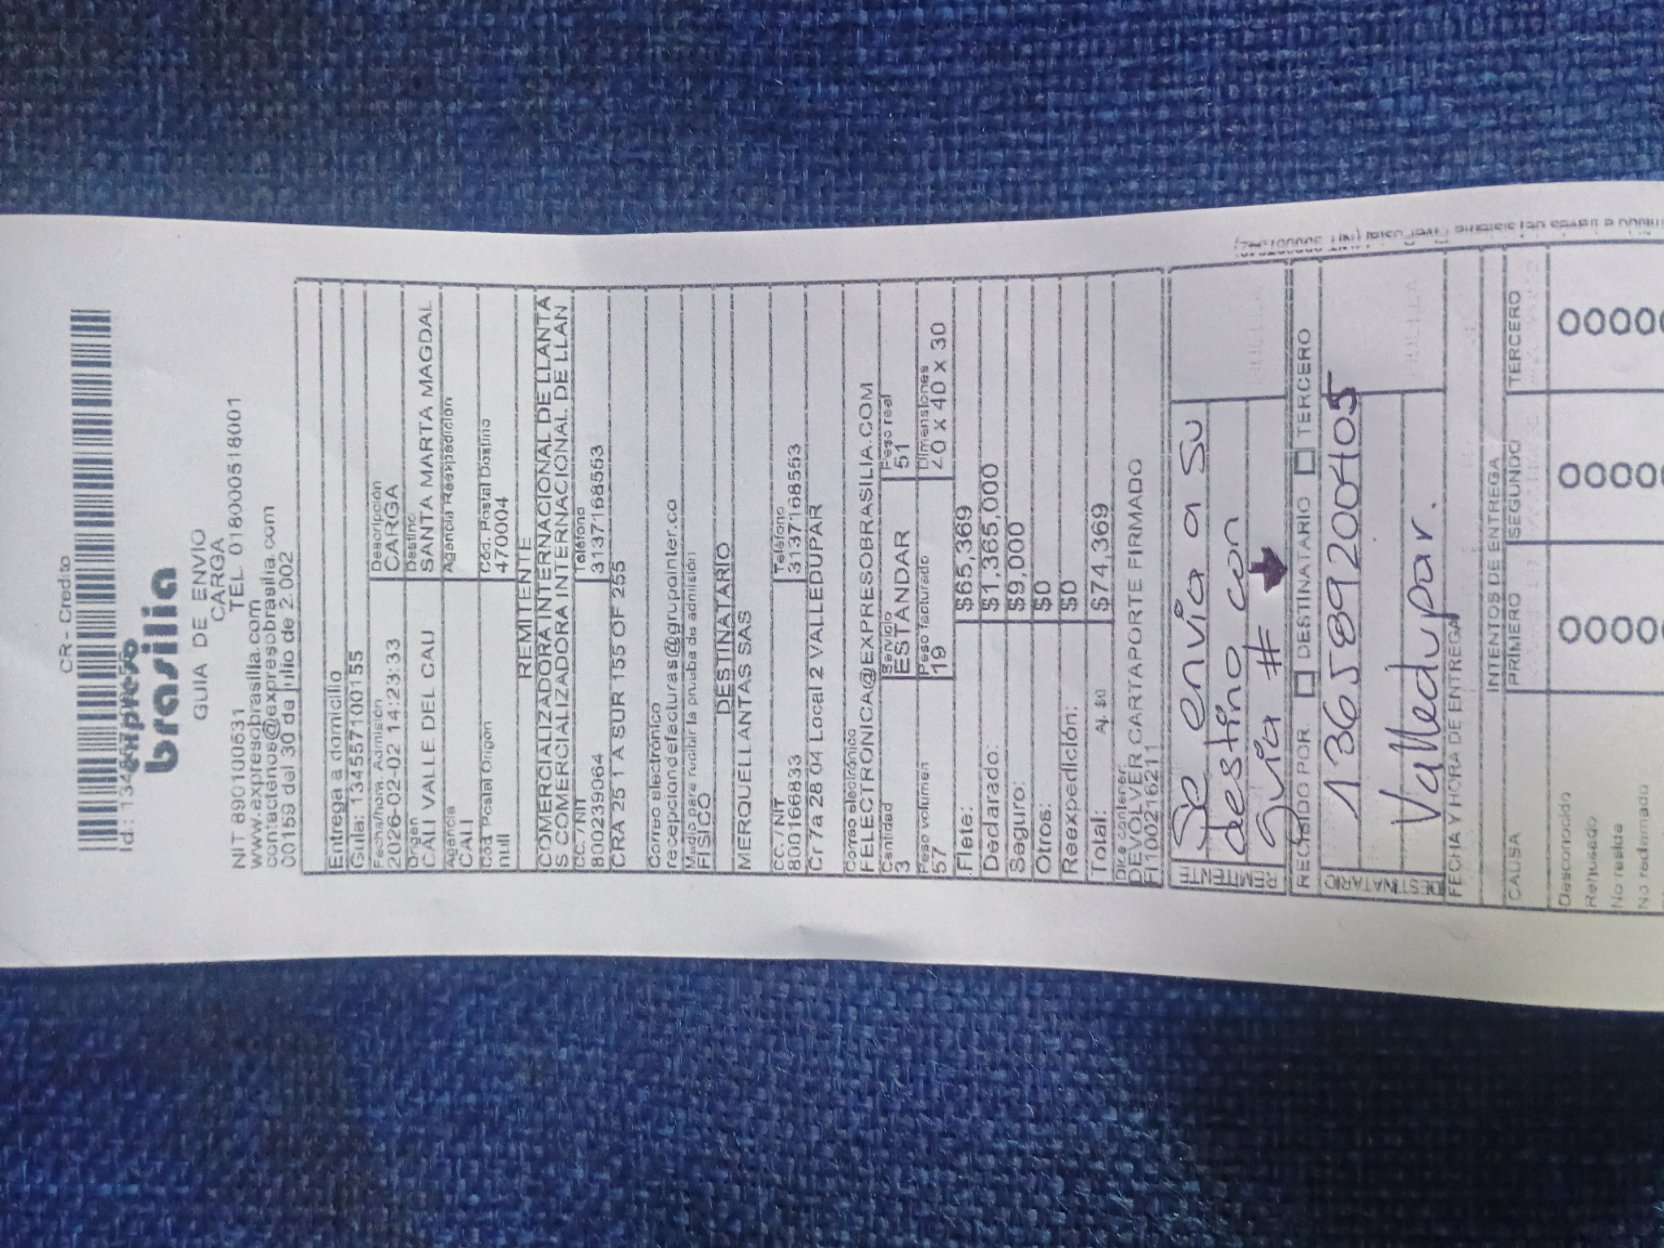 CR - Credito
brasilia
GUIA DE ENVIO
CARGA
NIT 890100531 TEL 018000518001
www.expresobrasilia.com
contactenos@expresobrasilia.com
00159 del 30 de julio de 2.002
Entrega a domicilio
Guia: 134557100155
Fecha/hora Admisión Descripción
2026-02-02 14:23:33 CARGA
Origen Destino
CALI VALLE DEL CAU SANTA MARTA MAGDAL
Agencia Agencia Reexpedición
CALI
Cód. Postal Origen Cód. Postal Destino
null 470004
REMITENTE
COMERCIALIZADORA INTERNACIONAL DE LLANTA
S COMERCIALIZADORA INTERNACIONAL DE LLAN
CC. / NIT Teléfono
800239064 3137168553
CRA 25 1 A SUR 155 OF 255
Correo electrónico
recepciondefacturas@grupointer.co
Medio para recibir la prueba de admisión
FISICO
DESTINATARIO
MERQUELLANTAS SAS
CC. / NIT Teléfono
800166833 3137168553
Cr 7a 28 04 Local 2 VALLEDUPAR
Correo electrónico
FELECTRONICA@EXPRESOBRASILIA.COM
Cantidad Servicio Peso real
3 ESTANDAR 51
Peso volumen Peso facturado Dimensiones
57 19 20 x 40 x 30
Flete: $65,369
Declarado: $1,365,000
Seguro: $9,000
Otros: $0
Reexpedición: $0
Total: Aj. $0 $74,369
Dice contener:
DEVOLVER CARTAPORTE FIRMADO
FI100216211
REMITENTE
Se envia a su
destino con
guia # ➔
RECIBIDO POR DESTINATARIO TERCERO
DESTINATARIO
136589200405
Valledupar.
FECHA Y HORA DE ENTREGA
INTENTOS DE ENTREGA
CAUSA PRIMERO SEGUNDO TERCERO
Desconocido
Rehusado
No reside
No reclamado